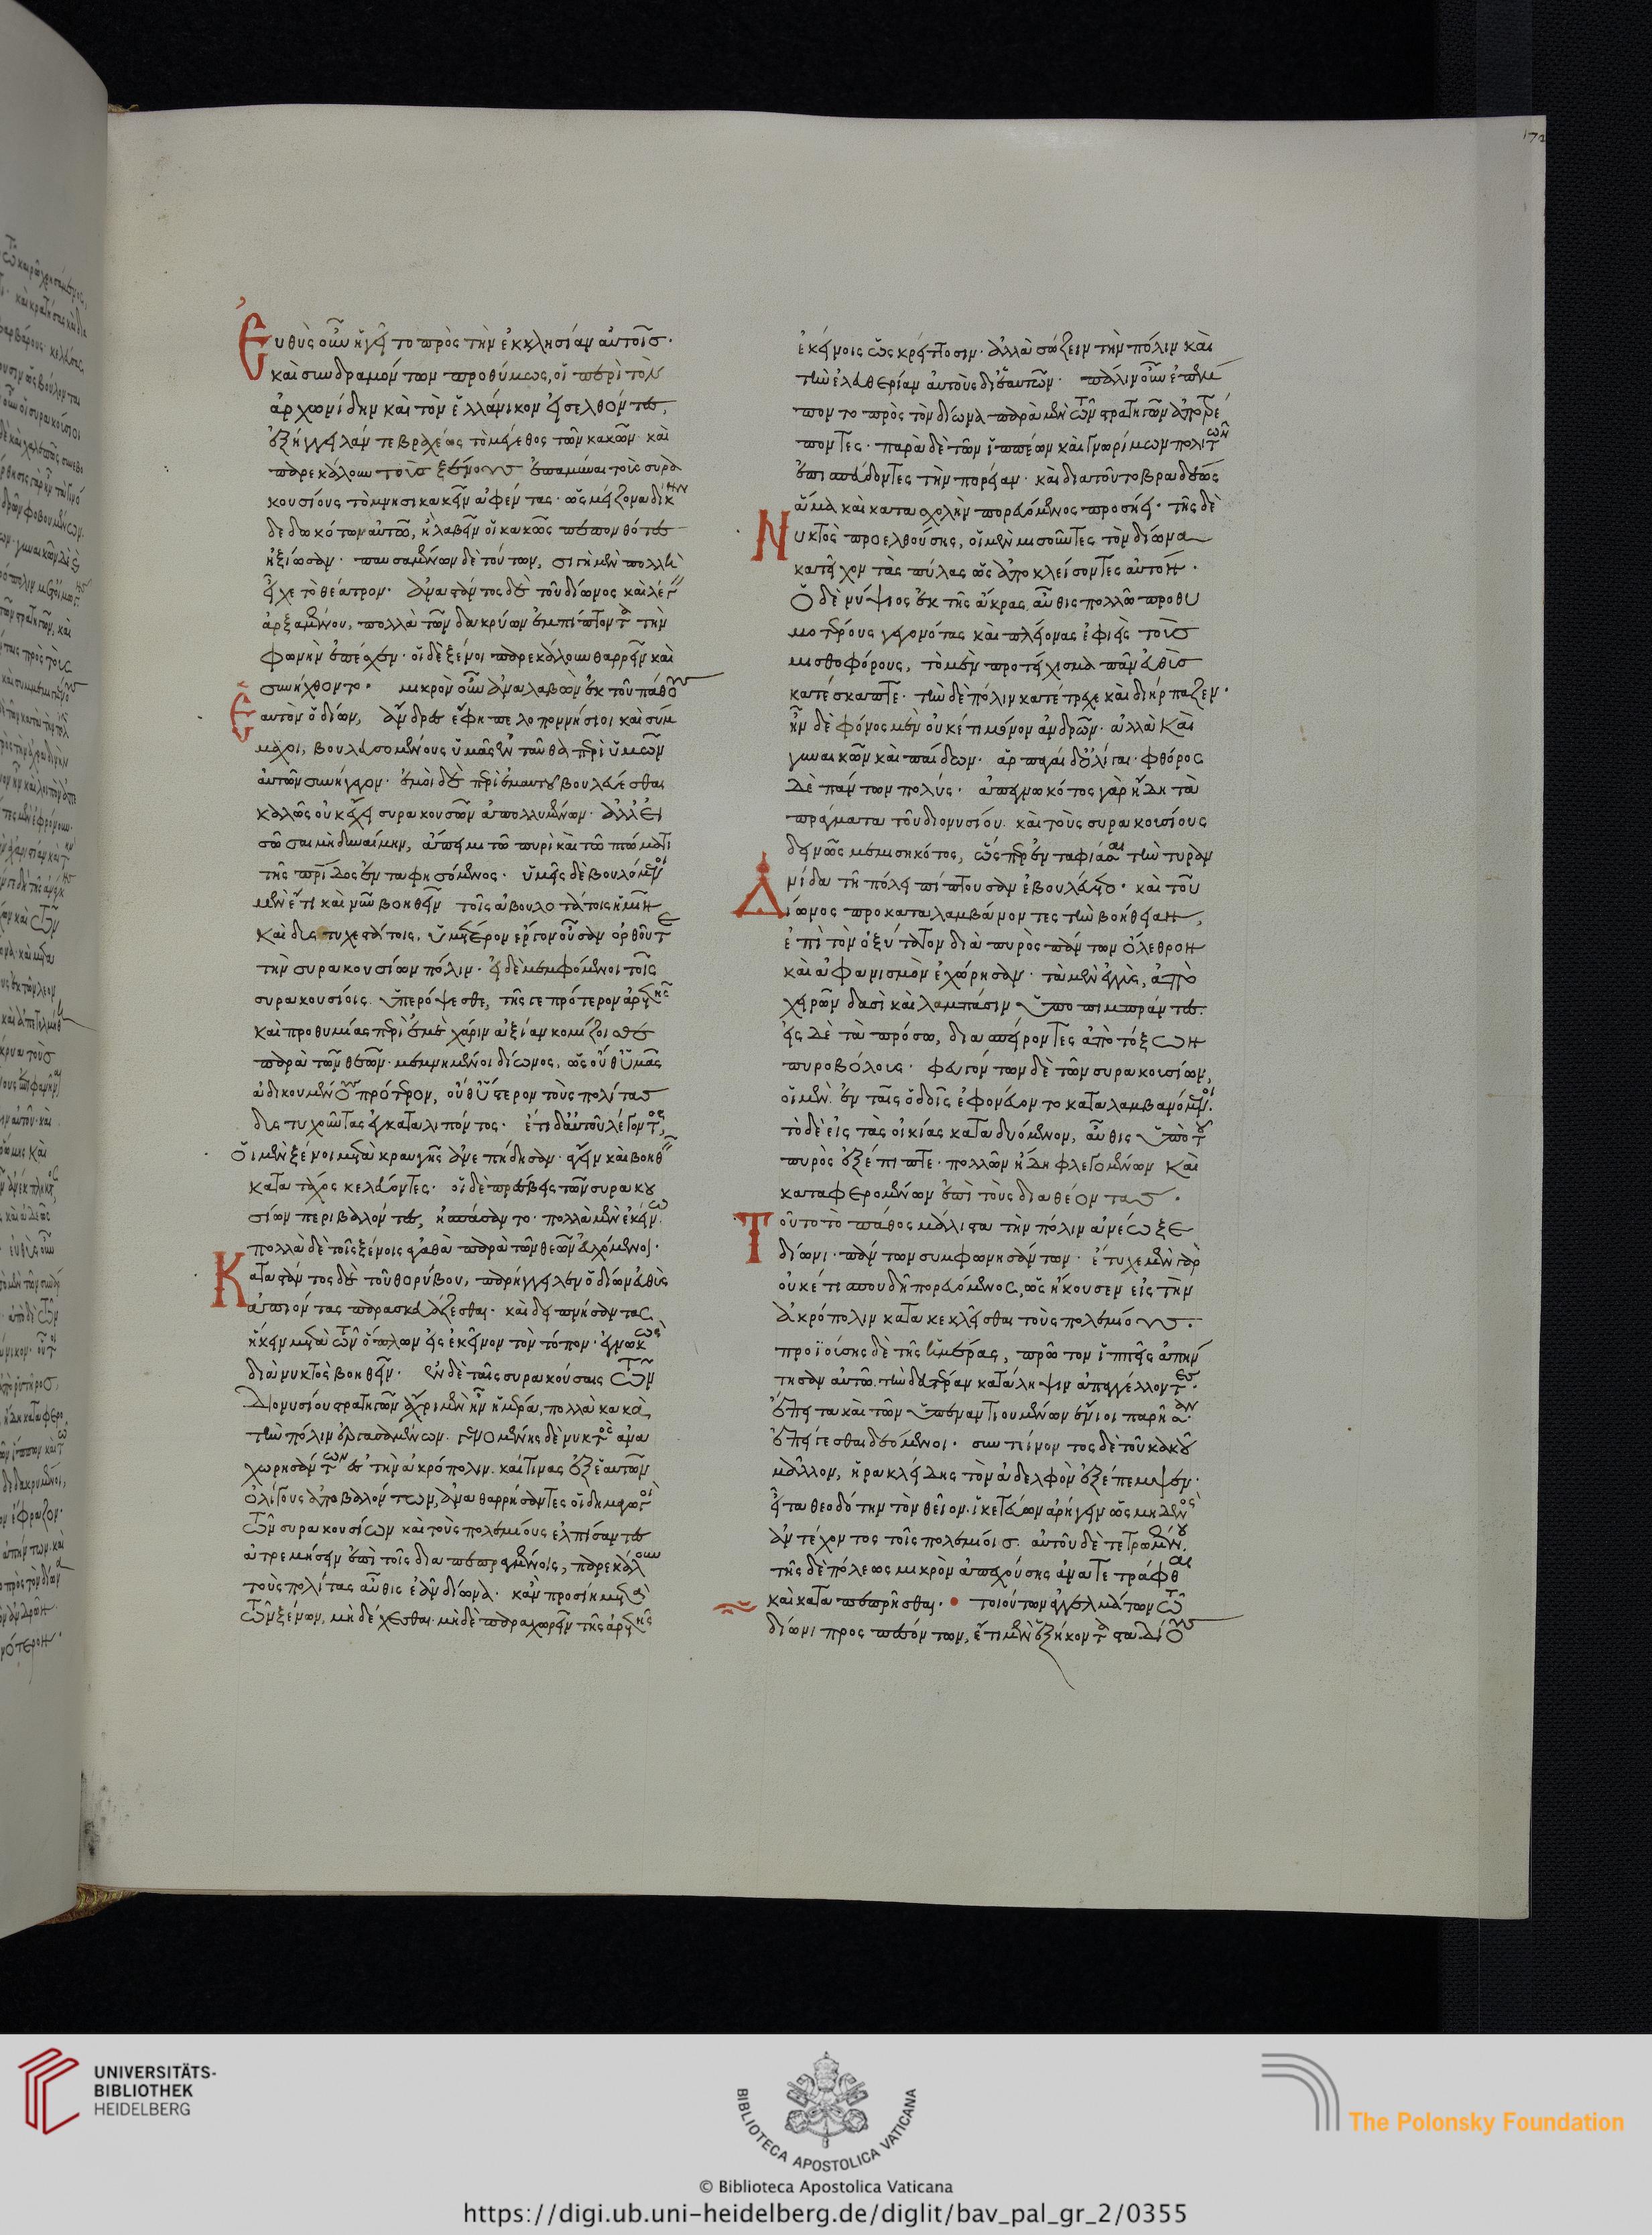 172
Εὐθὺς οὖν ἡγεῖτο πρὸς τὴν ἐκκλησίαν αὐτοῖς·
καὶ συνδραμόντων προθύμως, οἱ περὶ τὸν
ἀρχωνίδην καὶ τὸν ἑλλάνικον εἰσελθόντες,
ἐξήγγειλάν τε βραχέως τὸ μέγεθος τῶν κακῶν· καὶ
παρεκάλουν τοὺς ξένους ἐπαμῦναι τοῖς συρα
κουσίοις τὸ μνησικακεῖν ἀφέντας· ὡς μείζονα δίκην
δεδωκότων αὐτῶν, ἢ λαβεῖν οἱ κακῶς πεπονθότες
ἠξίωσαν· παυσαμένων δὲ τούτων, σιγὴ μὲν πολλὴ
εἶχε τὸ θέατρον· ἀναστάντος δὲ τοῦ δίωνος καὶ λέγειν
ἀρξαμένου, πολλὰ τῶν δακρύων ἐμπίπτοντα τὴν
φωνὴν ἐπέσχεν· οἱ δὲ ξένοι παρεκάλουν θαρρεῖν καὶ
συνήχθοντο· μικρὸν οὖν ἀναλαβὼν ἐκ τοῦ πάθους
Ἑαυτὸν ὁ δίων, ἄνδρες ἔφη πελοποννήσιοι καὶ σύμ
μαχοι, βουλευσομένους ὑμᾶς ἐνταῦθα περὶ ὑμῶν
αὐτῶν συνήγαγον· ἐμοὶ δὲ περὶ ἐμαυτοῦ βουλεύεσθαι
καλῶς οὐκ ἔχει συρακουσῶν ἀπολλυμένων· ἀλλ' εἰ
σῶσαι μὴ δυναίμην, ἄπειμι τῷ πυρὶ καὶ τῷ πτώματι
τῆς πατρίδος ἐνταφησόμενος· ὑμεῖς δὲ βουλόμενοι
μὲν ἔτι καὶ νῦν βοηθεῖν τοῖς ἀβουλοτάτοις ἡμῖν
καὶ δυστυχεστάτοις, ὑμέτερον ἔργον οὖσαν ὀρθοῦτε
τὴν συρακουσίων πόλιν· εἰ δὲ μεμφόμενοι τοῖς
συρακουσίοις ὑπερόψεσθε, τῆς γε πρότερον ἀρετῆς
καὶ προθυμίας περὶ ἐμὲ χάριν ἀξίαν κομίζοισθε
παρὰ τῶν θεῶν· μεμνημένοι δίωνος, ὡς οὔθ' ὑμᾶς
ἀδικουμένους πρότερον, οὔθ' ὕστερον τοὺς πολίτας
δυστυχοῦντας ἐγκαταλιπόντος· ἔτι δ' αὐτοῦ λέγοντος,
Οἱ μὲν ξένοι μετὰ κραυγῆς ἀνεπήδησαν· ἄγειν καὶ βοηθεῖν
κατὰ τάχος κελεύοντες· οἱ δὲ πρέσβεις τῶν συρακου
σίων περιβαλόντες, ἠσπάσαντο· πολλὰ μὲν ἐκείνῳ
πολλὰ δὲ τοῖς ξένοις ἀγαθὰ παρὰ τῶν θεῶν εὐχόμενοι·
Καταστάντος δὲ τοῦ θορύβου, παρήγγειλεν ὁ δίων εὐθὺς
ἀπιόντας παρασκευάζεσθαι· καὶ δειπνήσαντας
ἥκειν μετὰ τῶν ὅπλων εἰς ἐκεῖνον τὸν τόπον· ἐγνωκὼς
διὰ νυκτὸς βοηθεῖν· ἐν δὲ ταῖς συρακούσαις τῶν
Διονυσίου στρατηγῶν ἄχρι μὲν ἦν ἡμέρα, πολλὰ κακὰ
τὴν πόλιν ἐργασαμένων· γενομένης δὲ νυκτὸς ἀνα
χωρησάντων εἰς τὴν ἀκρόπολιν· καί τινας ἐξ ἑαυτῶν
ὀλίγους ἀποβαλόντων, ἀναθαρρήσαντες οἱ δημαγωγοὶ
τῶν συρακουσίων καὶ τοὺς πολεμίους ἐλπίσαντες
ἀτρεμήσειν ἐπὶ τοῖς διαπεπραγμένοις, παρεκάλουν
τοὺς πολίτας αὖθις ἐᾶν δίωνα· κἂν προσίῃ μετὰ
τῶν ξένων, μὴ δέχεσθαι· μηδὲ παραχωρεῖν τῆς ἀρετῆς
ἐκείνοις ὡς κρείττοσιν· ἀλλὰ σώζειν τὴν πόλιν καὶ
τὴν ἐλευθερίαν αὐτοὺς δι' ἑαυτῶν· πάλιν οὖν ἐπέμ
ποντο πρὸς τὸν δίωνα παρὰ μὲν τῶν στρατηγῶν ἀποτρέ
ποντες· παρὰ δὲ τῶν ἱππέων καὶ γνωρίμων πολιτῶν
ἐπισπεύδοντες τὴν πορείαν· καὶ διὰ τοῦτο βραδέως
ἅμα καὶ κατὰ σχολὴν πορευόμενος προσῄει· τῆς δὲ
Νυκτὸς προελθούσης, οἱ μὲν μισοῦντες τὸν δίωνα
κατεῖχον τὰς πύλας ὡς ἀποκλείσοντες αὐτόν·
Ὁ δὲ νύψιος ἐκ τῆς ἄκρας αὖθις πολλῷ προθυ
μοτέρους γεγονότας καὶ πλείονας ἐφιεὶς τοὺς
μισθοφόρους, τὸ μὲν προτείχισμα πᾶν εὐθὺς
κατέσκαπτε· τὴν δὲ πόλιν κατέτρεχε καὶ διήρπαζεν·
ἦν δὲ φόνος μὲν οὐκέτι μόνον ἀνδρῶν· ἀλλὰ καὶ
γυναικῶν καὶ παίδων· ἁρπαγαὶ δ' ὀλίγαι· φθόρος
δὲ πάντων πολύς· ἀπεγνωκότος γὰρ ἤδη τὰ
πράγματα τοῦ διονυσίου· καὶ τοὺς συρακουσίους
δεινῶς μεμισηκότος, ὥσπερ ἐνταφιάσαι τὴν τυραν
νίδα τῇ πόλει πίπτουσαν ἐβούλετο· καὶ τοῦ
Δίωνος προκαταλαμβάνοντες τὴν βοήθειαν,
ἐπὶ τὸν ὀξύτατον διὰ πυρὸς πάντων ὄλεθρον
καὶ ἀφανισμὸν ἐχώρησαν· τὰ μὲν ἐγγὺς, ἀπὸ
χειρῶν δᾳσὶ καὶ λαμπάσιν ὑποπιμπράντες·
εἰς δὲ τὰ πρόσω, διασπείροντες ἀπὸ τόξων
πυροβόλους· φευγόντων δὲ τῶν συρακουσίων,
οἱ μὲν ἐν ταῖς ὁδοῖς ἐφονεύοντο καταλαμβανόμενοι·
τὸ δὲ εἰς τὰς οἰκίας καταδυόμενον, αὖθις ὑπὸ τοῦ
πυρὸς ἐξέπιπτε· πολλῶν ἤδη φλεγομένων καὶ
καταφερομένων ἐπὶ τοὺς διαθέοντας·
Τοῦτο τὸ πάθος μάλιστα τὴν πόλιν ἀνέῳξε
δίωνι· πάντων συμφωνησάντων· ἔτυχε μὲν γὰρ
οὐκέτι σπουδῇ πορευόμενος, ὡς ἤκουσεν εἰς τὴν
ἀκρόπολιν κατακεκλεῖσθαι τοὺς πολεμίους·
προϊούσης δὲ τῆς ἡμέρας, πρῶτον ἱππεῖς ἀπήν
τησαν αὐτῷ τὴν δευτέραν κατάληψιν ἀπαγγέλλοντες·
ἔπειτα καὶ τῶν ὑπεναντιουμένων ἔνιοι παρῆσαν·
ἐπείγεσθαι δεόμενοι· συντείνοντος δὲ τοῦ κακοῦ
μᾶλλον, ἡρακλείδης τὸν ἀδελφὸν ἐξέπεμψεν·
εἶτα θεοδότην τὸν θεῖον· ἱκετεύων ἀρήγειν ὡς μηδενὸς
ἀντέχοντος τοῖς πολεμίοις· αὐτοῦ δὲ τετρωμένου·
τῆς δὲ πόλεως μικρὸν ἀπεχούσης ἀνατετράφθαι
καὶ καταπεπρῆσθαι· τοιούτων ἀγγελμάτων τῷ
δίωνι προσπεσόντων, ἔτι μὲν ἑξήκοντα σταδίους
UNIVERSITÄTS-
BIBLIOTHEK
HEIDELBERG
BIBLIOTECA APOSTOLICA VATICANA
The Polonsky Foundation
© Biblioteca Apostolica Vaticana
https://digi.ub.uni-heidelberg.de/diglit/bav_pal_gr_2/0355